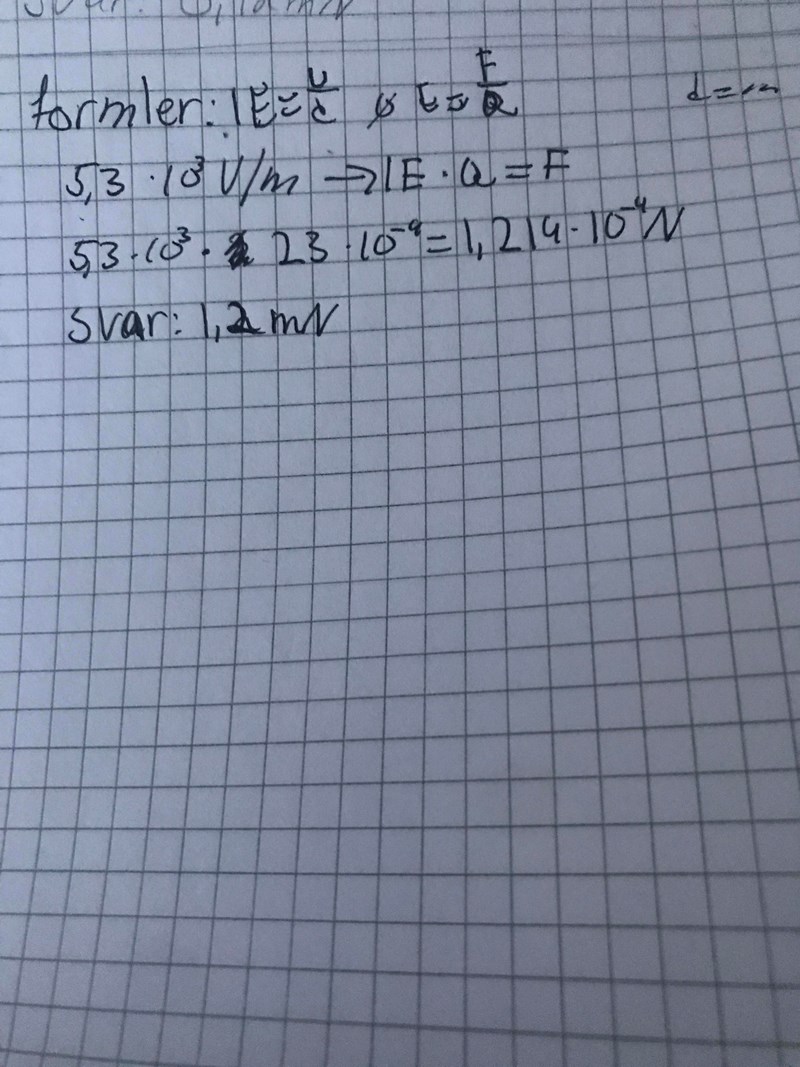 Svar: 0,12 mN
formler: E = U/d & E = F/Q d = m
5,3 · 10³ V/m → E · Q = F
5,3 · 10³ · 23 · 10⁻⁹ = 1,219 · 10⁻⁴ N
Svar: 1,2 mN